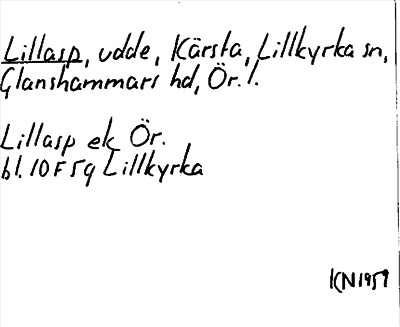 Lillasp, udde, Kärsta, Lillkyrka sn,
Glanshammars hd, Ör. l.
Lillasp ek Ör.
bl. 10 F 5g Lillkyrka
KN 1959